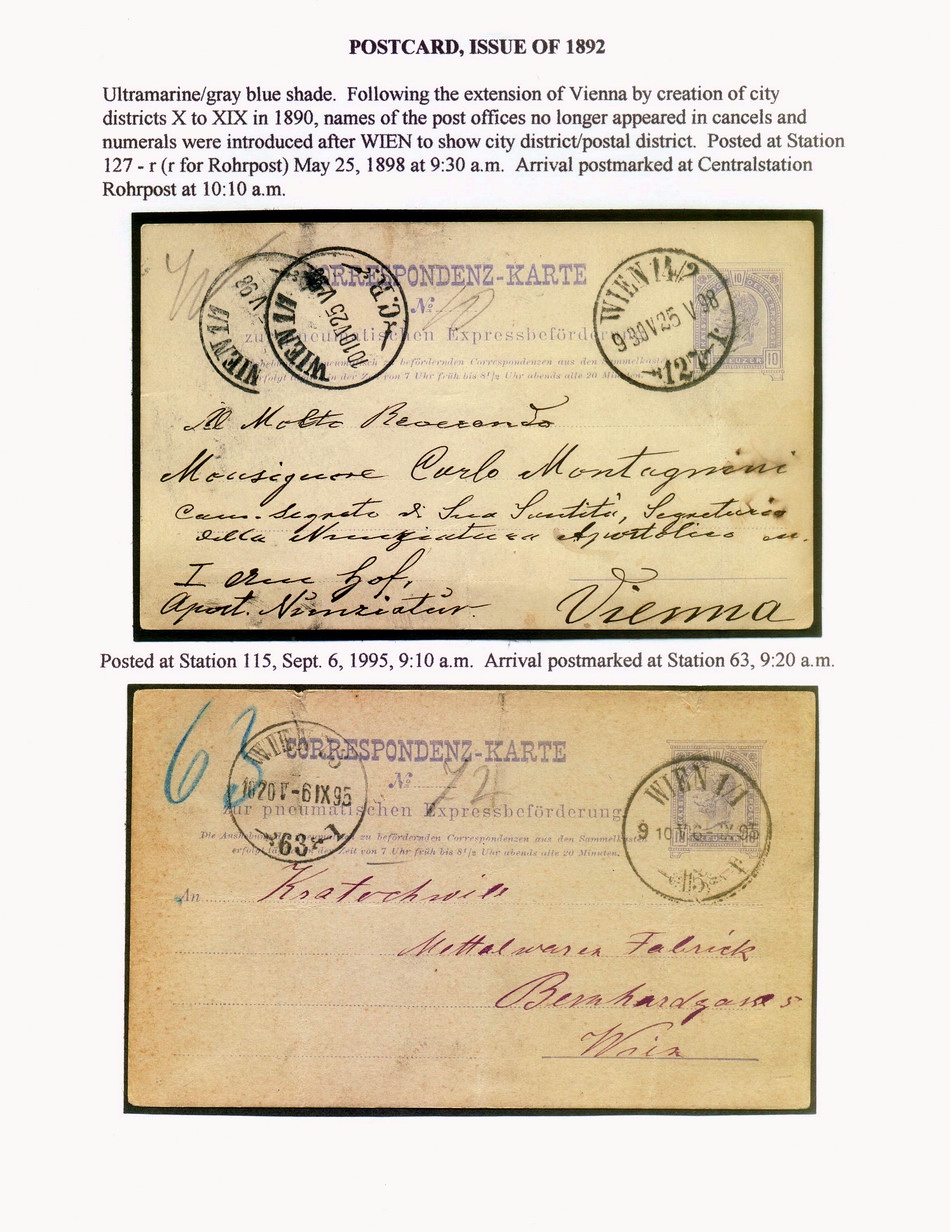 POSTCARD, ISSUE OF 1892
Ultramarine/gray blue shade. Following the extension of Vienna by creation of city
districts X to XIX in 1890, names of the post offices no longer appeared in cancels and
numerals were introduced after WIEN to show city district/postal district. Posted at Station
127 - r (r for Rohrpost) May 25, 1898 at 9:30 a.m. Arrival postmarked at Centralstation
Rohrpost at 10:10 a.m.
CORRESPONDENZ-KARTE
WIEN 1/1
V 98
WIEN 1/1
1010V25 V 98
C.R.
WIEN 14/2
9·30V25 V 98
127
No
zur pneumatischen Expressbeförder
10 10
KREUZER 10
befördernden Correspondenzen aus den Sammelkasten
erfolgt in der Zeit von 7 Uhr früh bis 8½ Uhr abends alle 20 Minuten.
Al Molto Reverendo
Monsignore Carlo Montagnini
Cam. Segreto di Sua Santità, Segretario
della Nunziatura Apostolica in
I am Hof,
Apost. Nunziatur.
Vienna
Posted at Station 115, Sept. 6, 1995, 9:10 a.m. Arrival postmarked at Station 63, 9:20 a.m.
63
CORRESPONDENZ-KARTE
No 72
WIEN
20 V-6 IX 95
63
WIEN 1/1
9 10 V 95
115
zur pneumatischen Expressbeförderung
Die zu befördernden Correspondenzen aus den Sammelkasten
erfolgt der Zeit von 7 Uhr früh bis 8½ Uhr abends alle 20 Minuten.
An Kratochwill
Mettalwaren Fabrick
Bernhardgasse 5
Wien